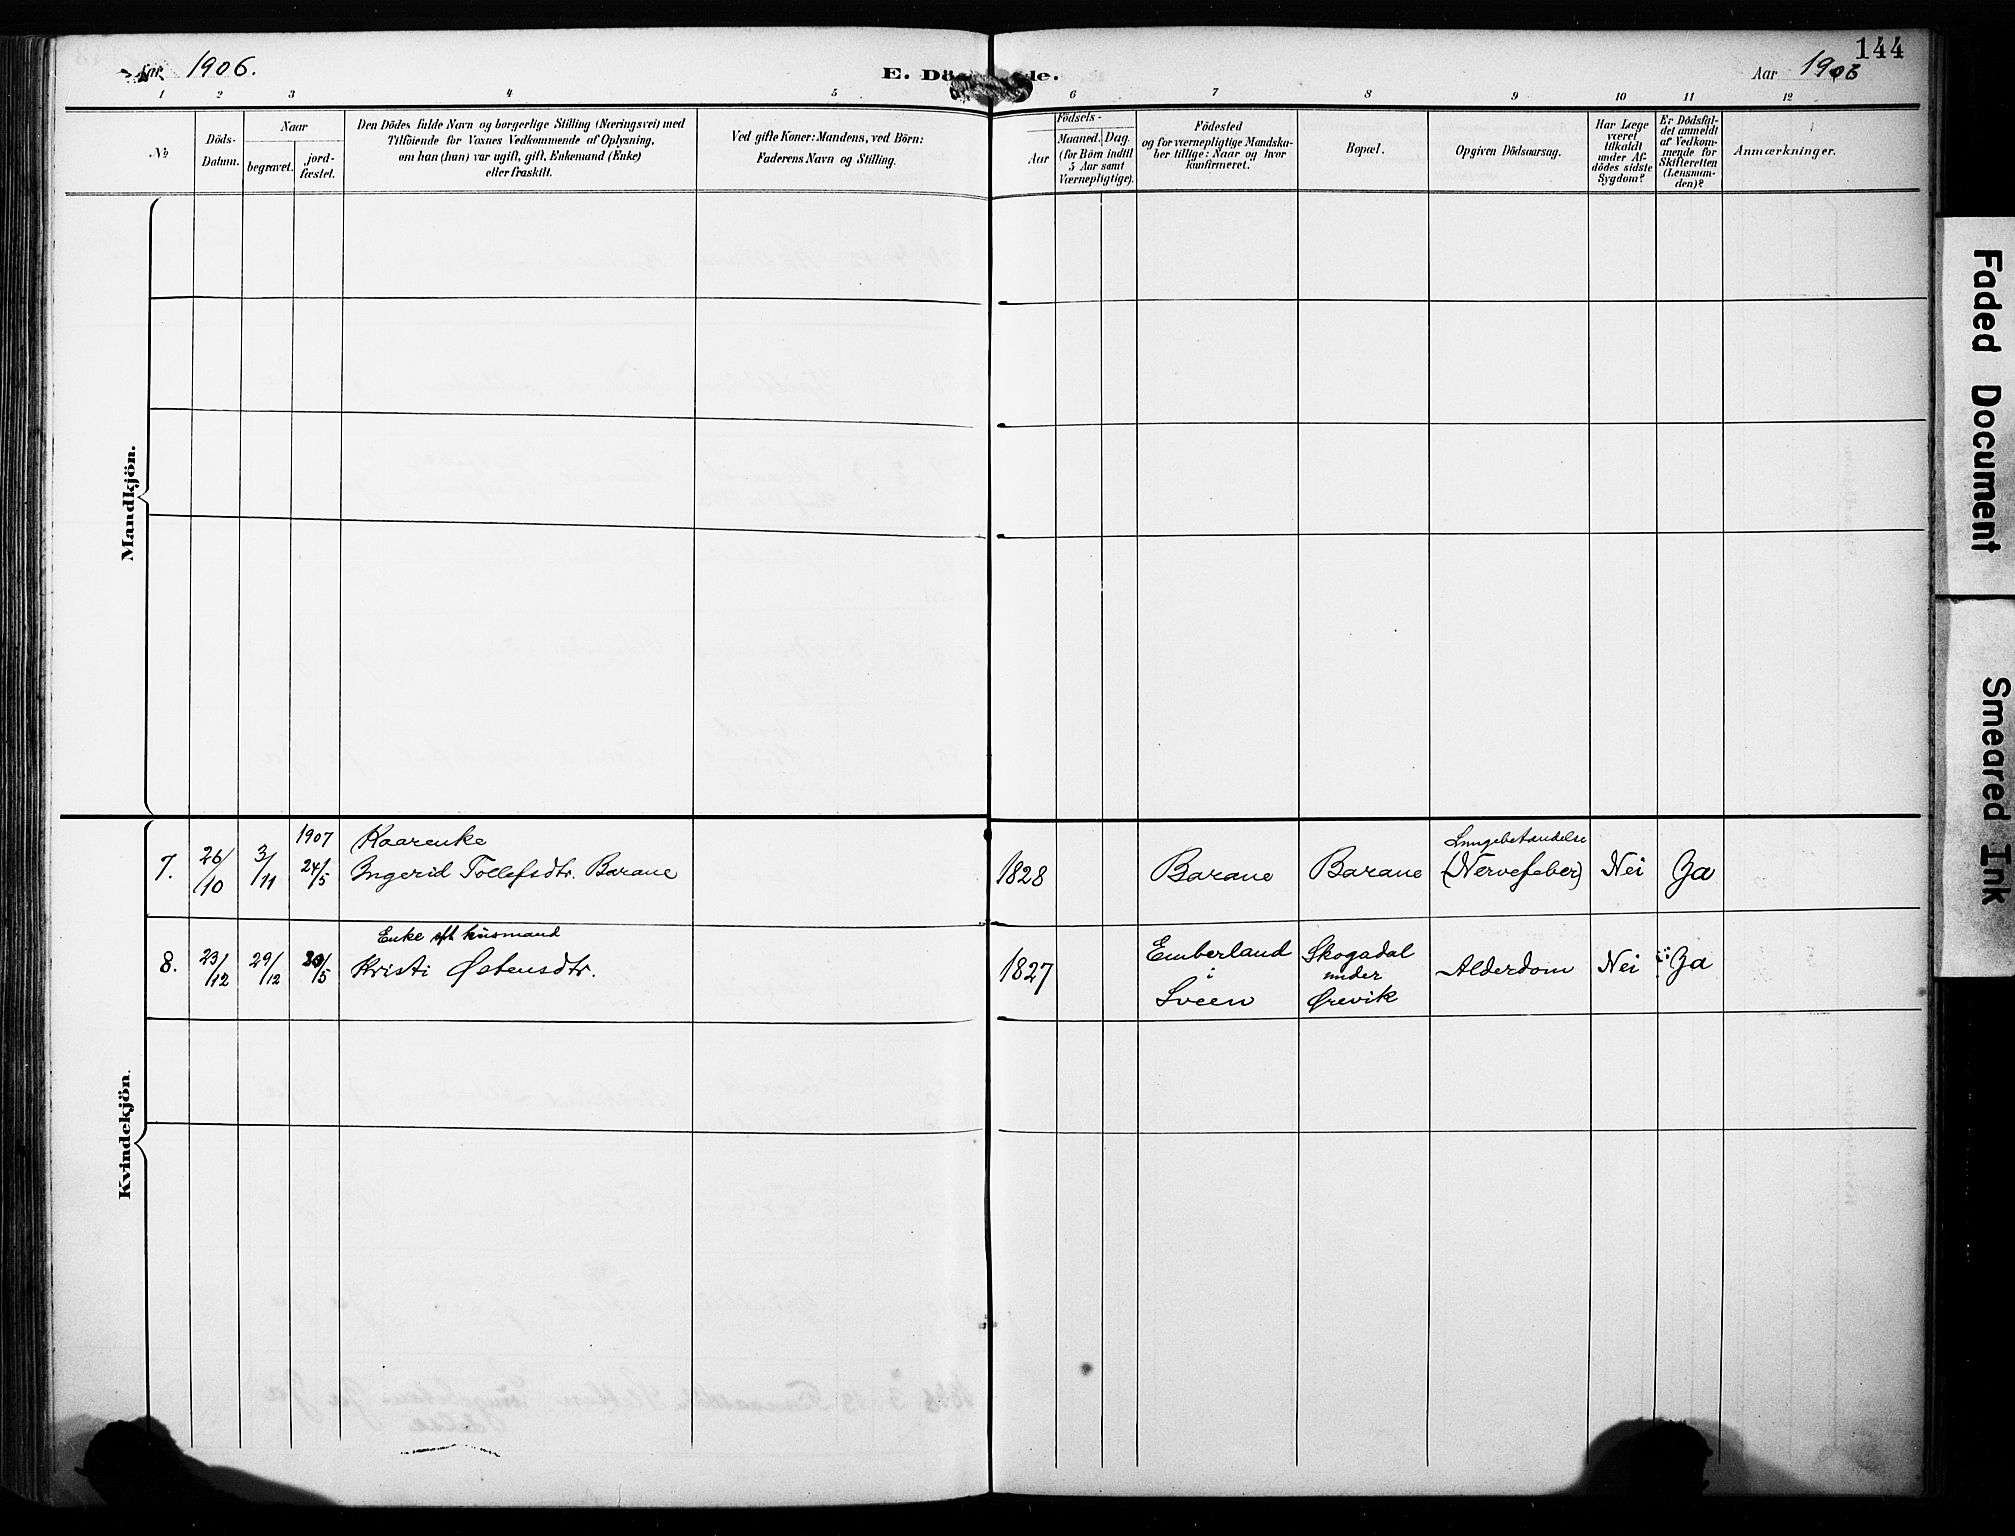 Aar 1906.
E. Dö de.
Aar 1906
144
1 2 3 4 5 6 7 8 9 10 11 12
№
Döds-
Datum.
Naar
begravet.
jord-
fæstet.
Den Dödes fulde Navn og borgerlige Stilling (Næringsvei) med
Tilföiende for Voxnes Vedkommende af Oplysning,
om han (hun) var ugift, gift, Enkemand (Enke)
eller fraskilt.
Ved gifte Koner: Mandens, ved Börn:
Faderens Navn og Stilling.
Födsels-
Aar
Maaned.
Dag.
(for Börn indtil
5 Aar samt
Værnepligtige).
Födested
og for værnepligtige Mandska-
ber tillige: Naar og hvor
konfirmeret.
Bopæl.
Opgiven Dödsaarsag.
Har Læge
været
tilkaldt
under Af-
dödes sidste
Sygdom?
Er Dödsfal-
det anmeldt
af Vedkom-
mende for
Skifteretten
(Lensman-
den)?
Anmærkninger.
Mandkjön.
Kvindekjön.
7.
26/10
3/11
1907
24/5
Kaarenke
Ingerid Tollefsdtr. Barane
1828
Barane
Barane
Lungebetændelse
(Nervefeber)
Nei
Ja
8.
23/12
29/12
Enke eft husmand
Kristi Østensdtr.
1827
Emberland
i
Sveen
Skogadal
under
Ørevik
Alderdom
Nei
Ja
Faded Document
Smeared Ink